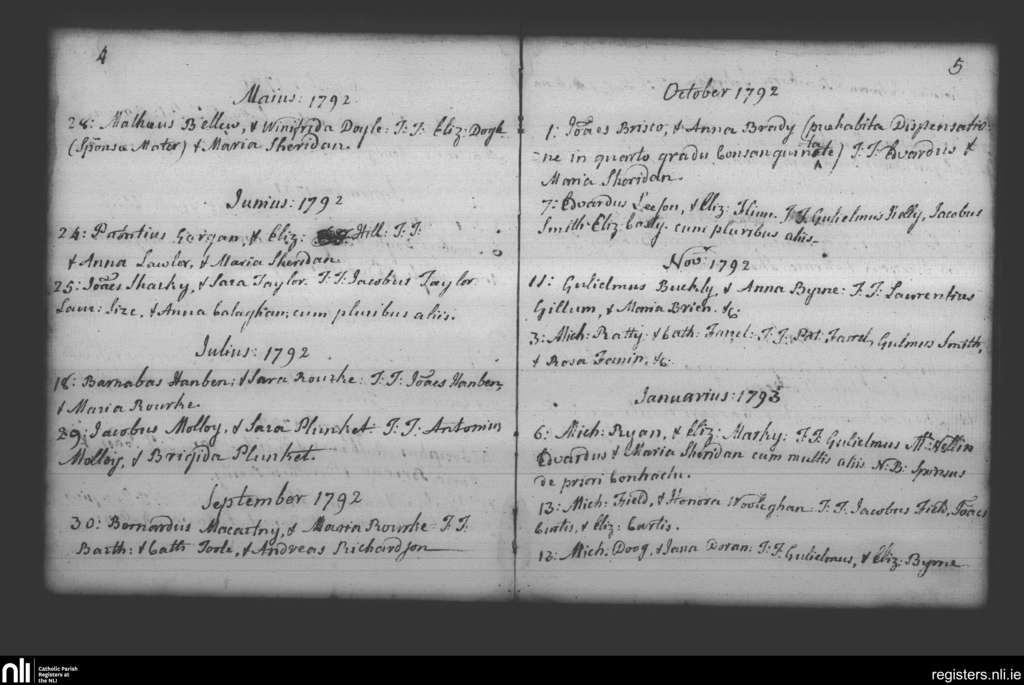 4
Maius: 1792
28: Mathæus Bellew, & Winifrida Doyle: T: T: Eliz: Doyle
(Sponsæ Mater) & Maria Sheridan.
Junius: 1792
24: Pontius Gorgan, & Eliz: Hill: T: T:
& Anna Lawlor, & Maria Sheridan
25: Joães Sharky, & Sara Taylor. T: T: Jacobus Taylor.
Laur: & Anna Calaghan; cum pluribus aliis.
Julius: 1792
18: Barnabas Hanben; & Sara Rourke: T: T: Joães Hanben,
& Maria Rourke.
29: Jacobus Molloy, & Sara Plunket: T: T: Antonius
Molloy, & Brigida Plunket.
September 1792
30: Bernardus Macartny, & Maria Rourke T: T:
Barth: & Cath: Toole, & Andreas Richardson
5
October 1792
1: Joães Brisco, & Anna Brady (præhabita Dispensatio-
=ne in quarto gradu Consanguinitate) T: T: Edvardus &
Maria Sheridan.
7: Edvardus Leeson, & Eliz: T: T: Gulielmus Kally, Jacobus
Smith Eliz: Casly. cum pluribus aliis.
Nov: 1792
11: Gulielmus Buckly & Anna Byrne: T: T: Lawrentius
Gillum, & Maria Brien. &c:
3: Mich: Ratty: & Cath: Farrel: T: T: Pat: Farrel, Gulmus Smith,
& Rosa &c:
Januarius: 1793
6: Mich: Ryan, & Eliz: Harky: T: T: Gulielmus
Edvardus & Maria Sheridan cum multis aliis N:B: Sponsus
de priori
13: Mich: Field, & Honora Wooleghan T: T: Jacobus Field, Joães
Curtis, & Eliz: Curtis.
13: Mich: Doog, & Jana Doran: T: T: Gulielmus, & Eliz: Byrne
nli
Catholic Parish
Registers at
the NLI
registers.nli.ie